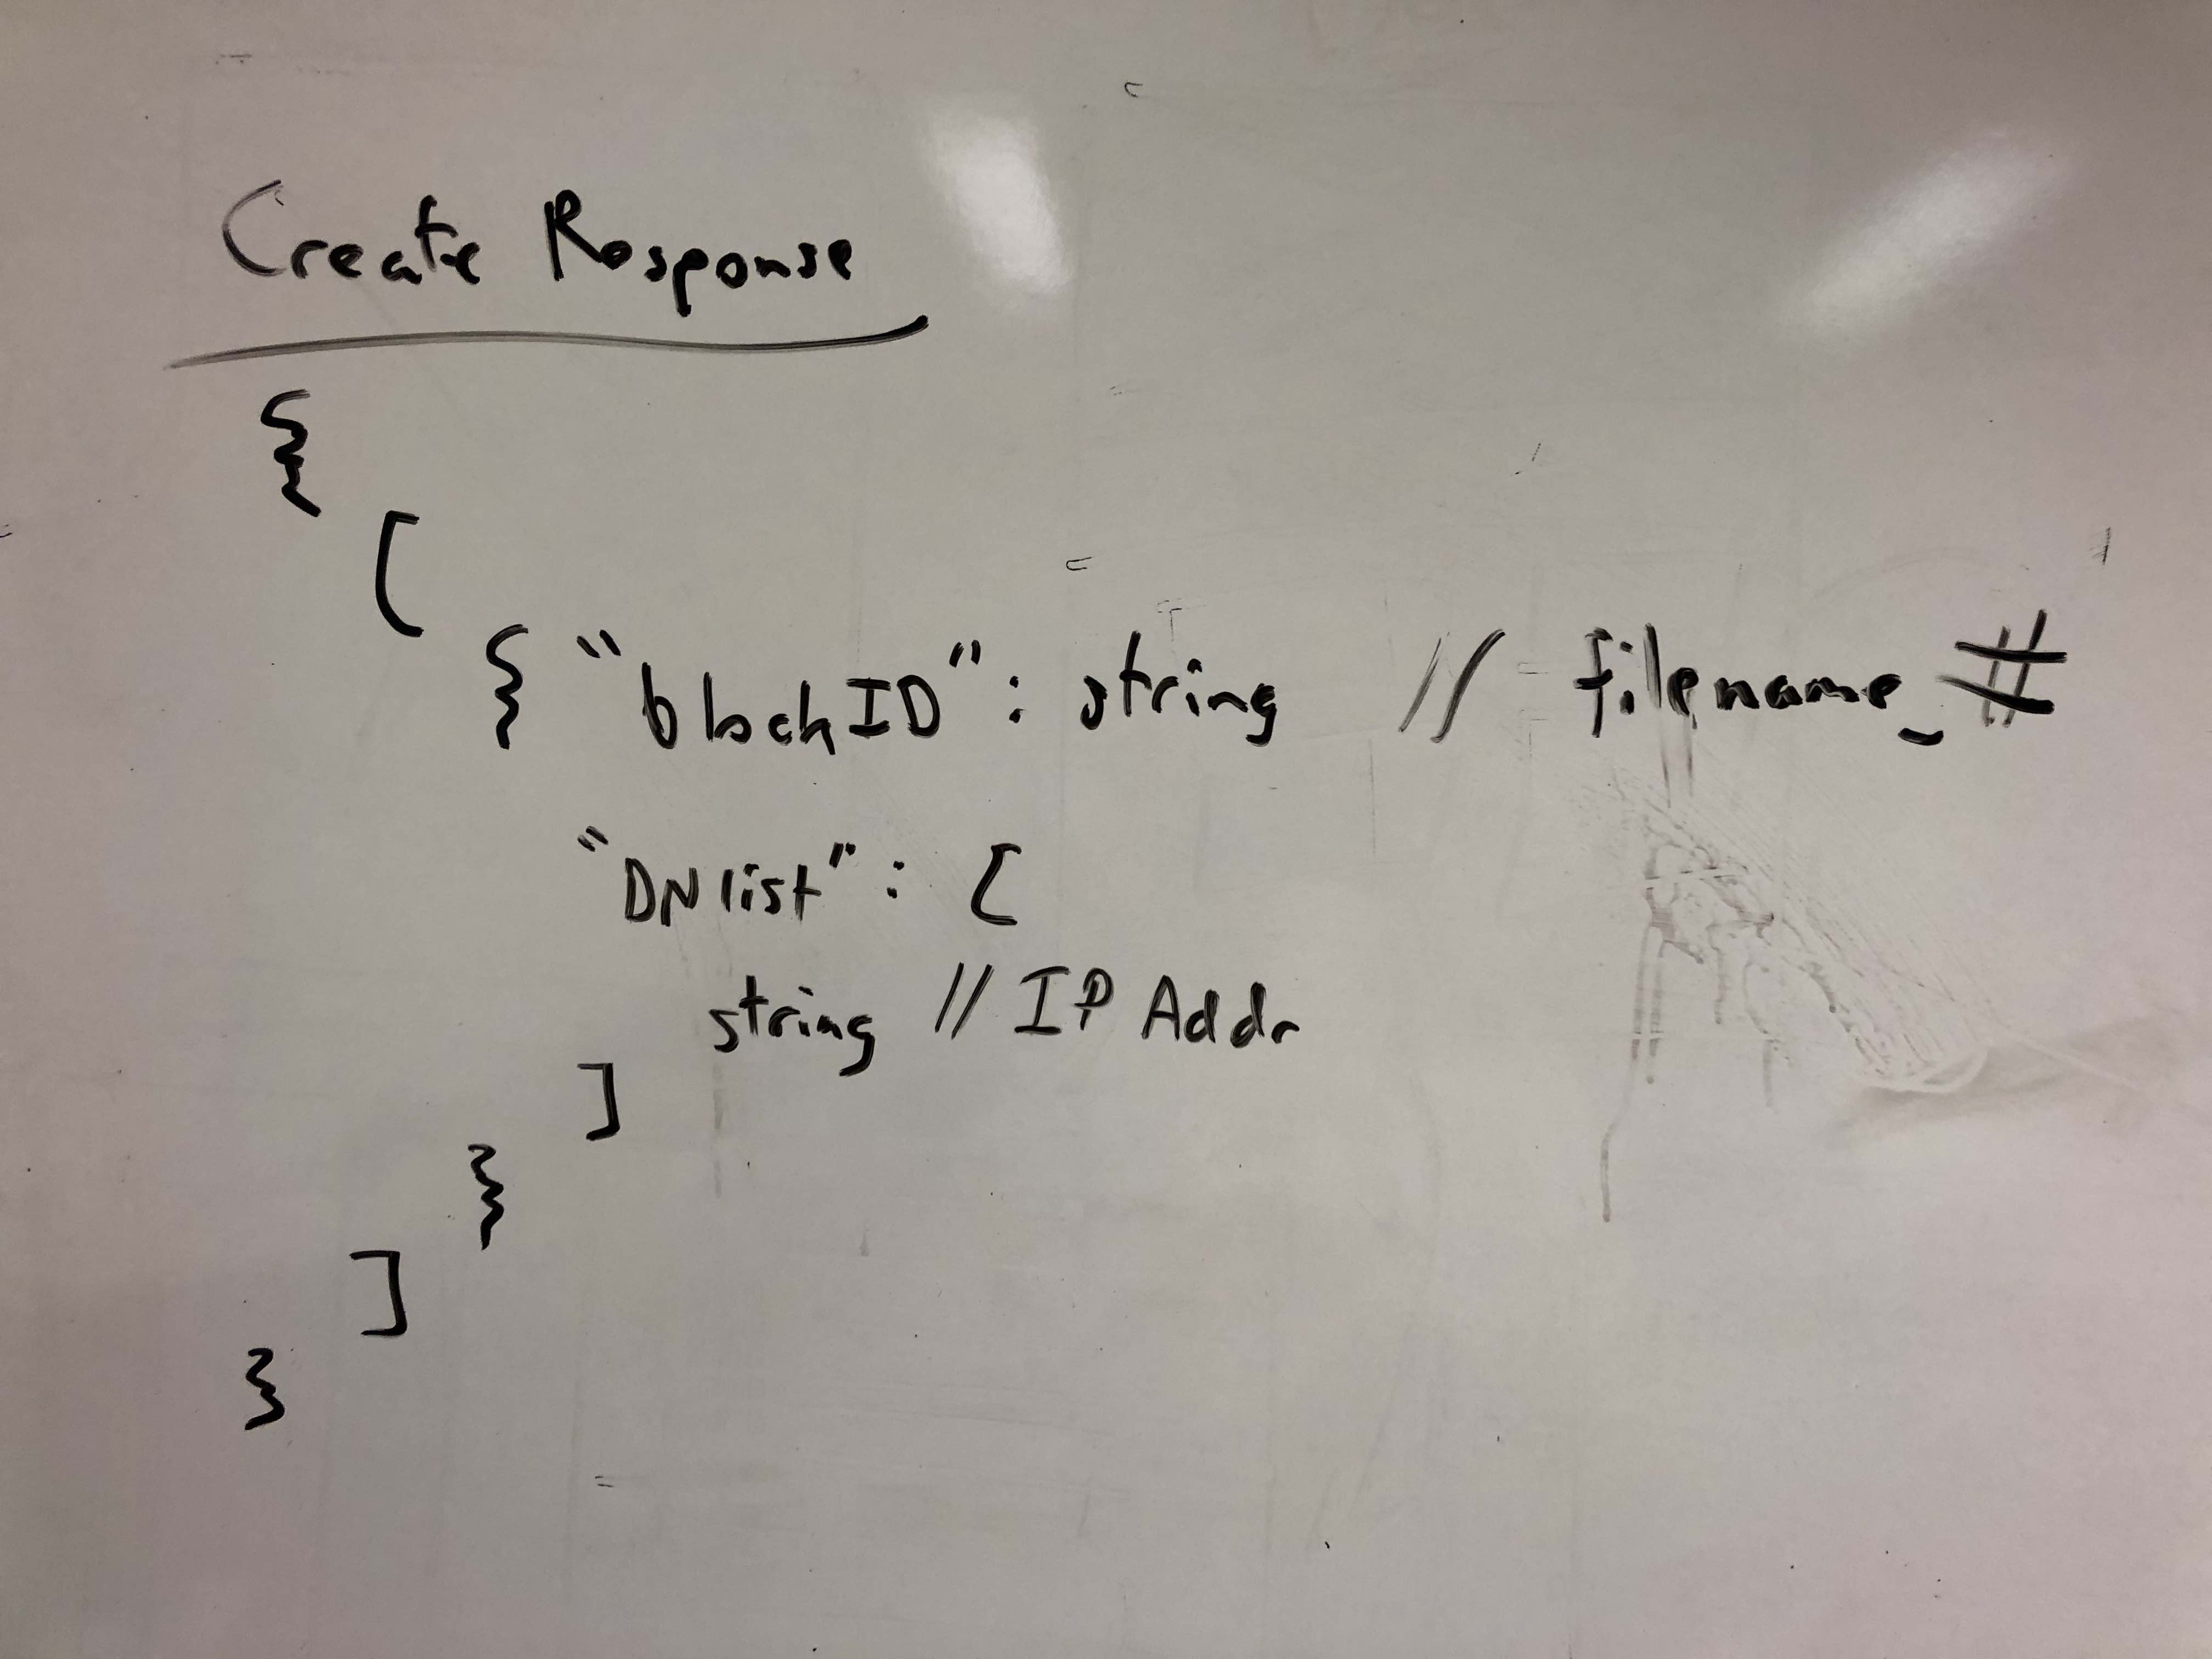 Create Response
{
[
{ "blockID" : string // filename_#
"DNlist" : [
string // IP Addr
]
}
]
}